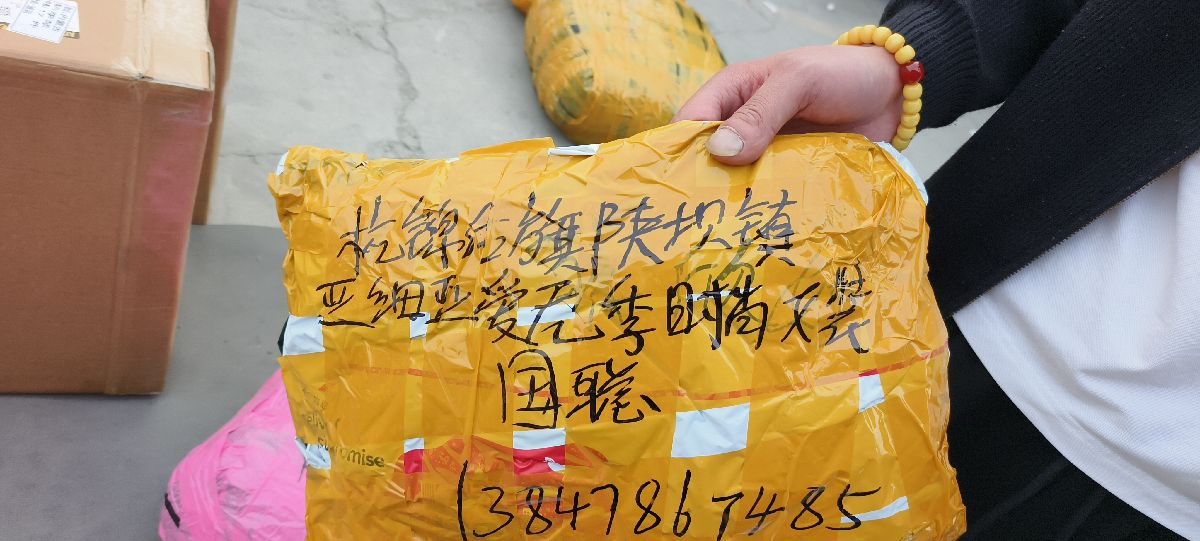 杭锦后旗陕坝镇
亚细亚爱尼季时尚女装
田聪
13847867485
omise